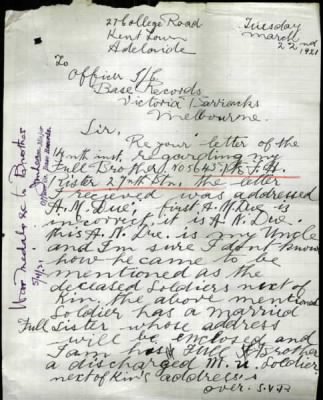 27 College Road
Kent Town
Adelaide
Tuesday
March
22nd
1921
To
Officer I/C
Base Records
Victoria Barracks
Melbourne.
Sir.
Re your letter of the
14th inst, regarding my
Full Brother, No 5643. Pte. J. H.
27th Btn. the letter
received was addressed
A. M. first A. M.
incorrect it is A. N.
this A. N. is my Uncle
and I'm sure I don't know
how he came to be
mentioned as the
deceased Soldiers next of
Kin, the above mentioned
Soldier has a married
Full Sister whose address
will be enclosed and
I am his Full Brother
a discharged Soldier
next of kin's address is
over.
War medals &c to Brother